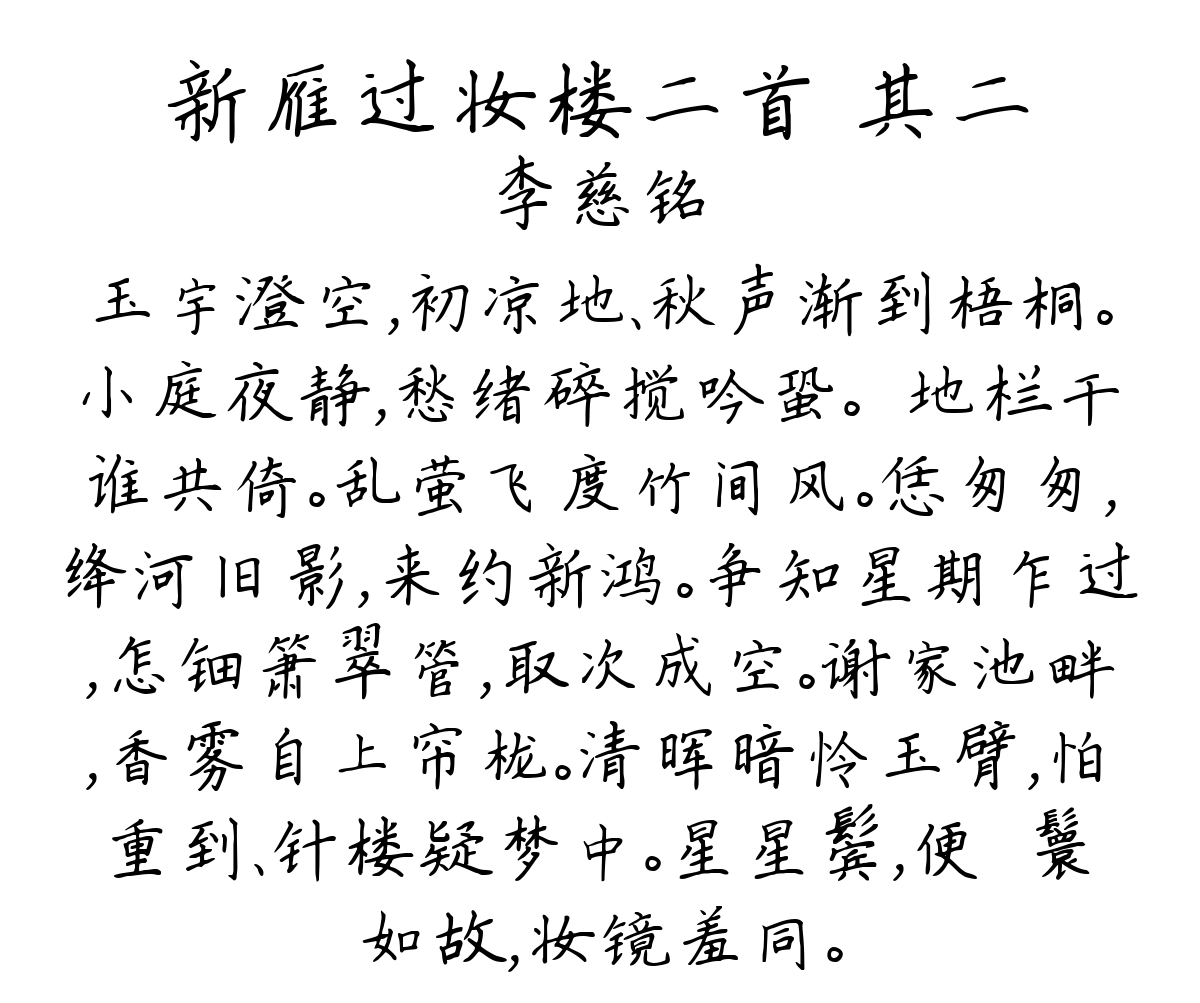 新雁过妆楼二首 其二
李慈铭
玉宇澄空,初凉地、秋声渐到梧桐。
小庭夜静,愁绪碎搅吟蛩。 地栏干
谁共倚。乱萤飞度竹间风。恁匆匆,
绛河旧影,来约新鸿。争知星期乍过
,怎钿箫翠管,取次成空。谢家池畔
,香雾自上帘栊。清晖暗怜玉臂,怕
重到、针楼疑梦中。星星鬓,便 鬟
如故,妆镜羞同。